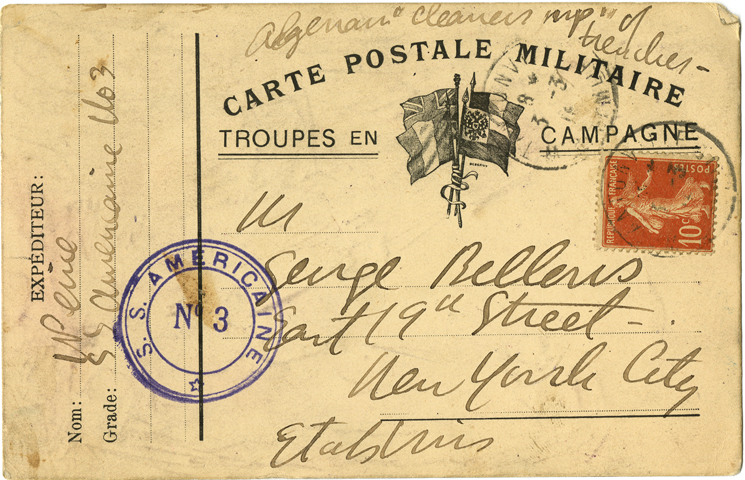 Algerian "cleaners up" of
trenches -
CARTE POSTALE MILITAIRE
TROUPES EN CAMPAGNE
POSTES
REPUBLIQUE FRANÇAISE
10c
M
George Bellows
East 19th Street -
New York City
Etats Unis
EXPÉDITEUR:
Nom:
Grade: SS Americaine No 3
S. S. AMÉRICAINE
No 3